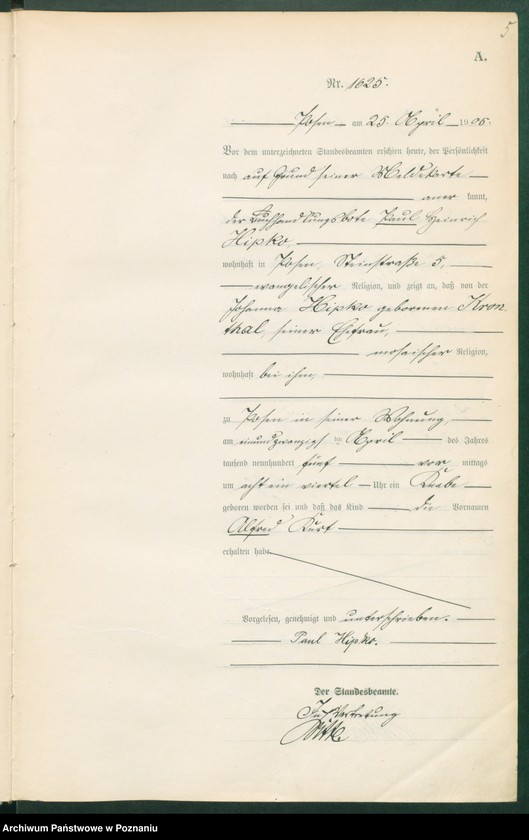 5
A.
Nr. 1625.
Posen am 25. April 1905.
Vor dem unterzeichneten Standesbeamten erschien heute, der Persönlichkeit
nach auf Grund seiner Meldekarte
aner kannt,
der Buchhandlungsbote Paul Heinrich
Hipko
wohnhaft in Posen, Steinstraße 5,
evangelischer Religion, und zeigte an, daß von der
Johanna Hipko geborenen Kron-
thal, seiner Ehefrau,
mosaischer Religion,
wohnhaft bei ihm,
zu Posen in seiner Wohnung,
am einundzwanzigsten April des Jahres
tausend neunhundert fünf vor mittags
um acht ein viertel Uhr ein Knabe
geboren worden sei und daß das Kind die Vornamen
Alfred Kurt
erhalten habe.
Vorgelesen, genehmigt und unterschrieben.
Paul Hipko.
Der Standesbeamte.
In Vertretung
Archiwum Państwowe w Poznaniu